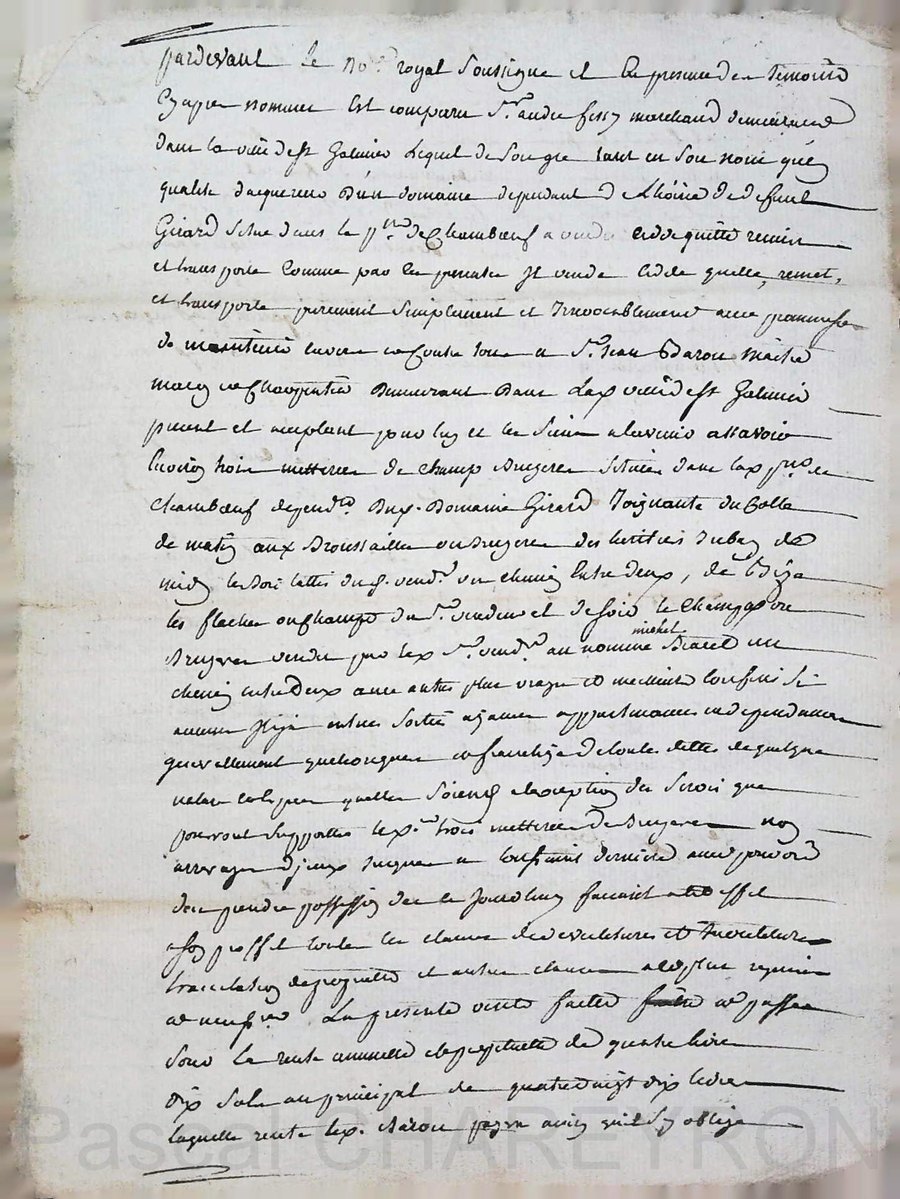 pardevant le no.re royal soussigné et En presence des temoins
Cy apres nommes Est comparu S.r andre fessy marchand demeurand
dans la ville de st Galmier Lequel de son gre tant en son nom qu'en
qualité d'acquereur D'un domaine dependant d de defunt
Girard Situe dans la p.sse de Chambœuf a vendu cedde quitte remis
et transporte comme par les presentes Il vend cedde quitte, remet,
et transporte purement simplement et Irrevocablement avec promesse
de maintenir envers et contre tous a S.r Jean Barou Maitre
macon et Charpentier Demeurant Dans lad. ville de st Galmier
present et acceptant pour luy et les siens a l'avenir assavoir
Environ trois metterées de champ Bruyere Scituées dans lad. p.sse de
Chambœuf depend.t Dud. Domaine Girard Joignants du Colté
de matin aux Broussailles ou Bruyeres des heritiers de
midy les dud. S. vend.r un chemin Entre deux, de Bize
les flaches ou champs du S.r vendeur et de soir le Champ ou
Bruyere vendu par led. S.r vend.r au nommé michel un
chemin entre deux avec autres plus vrays et meilleurs confins si
aucuns Il y a entrées sorties aisances appartenances et dependances
generallement quelconques et franchize de toutes dettes de quelque
nature et espece quelles soient a l'exception des servis que
peuvent supporter led. trois metterées de Bruyeres non
arreragés d'jceux jusques a toussaint derniere avec pouvoir
d'en prendre possession des ce jourdhuy faisant effet
a son proffit toutes les clauses de devestitures et Investitures
translation de proprietté et autres clauses a ce plus requises
et necess.res La presente vente faitte et passée
sous la rente annuelle et perpetuelle de quatre livres
dix sols au principal de quatre vingt dix livres
laquelle rente led. Barou payera ainsy quil s'y oblige
Pascal CHAREYRON